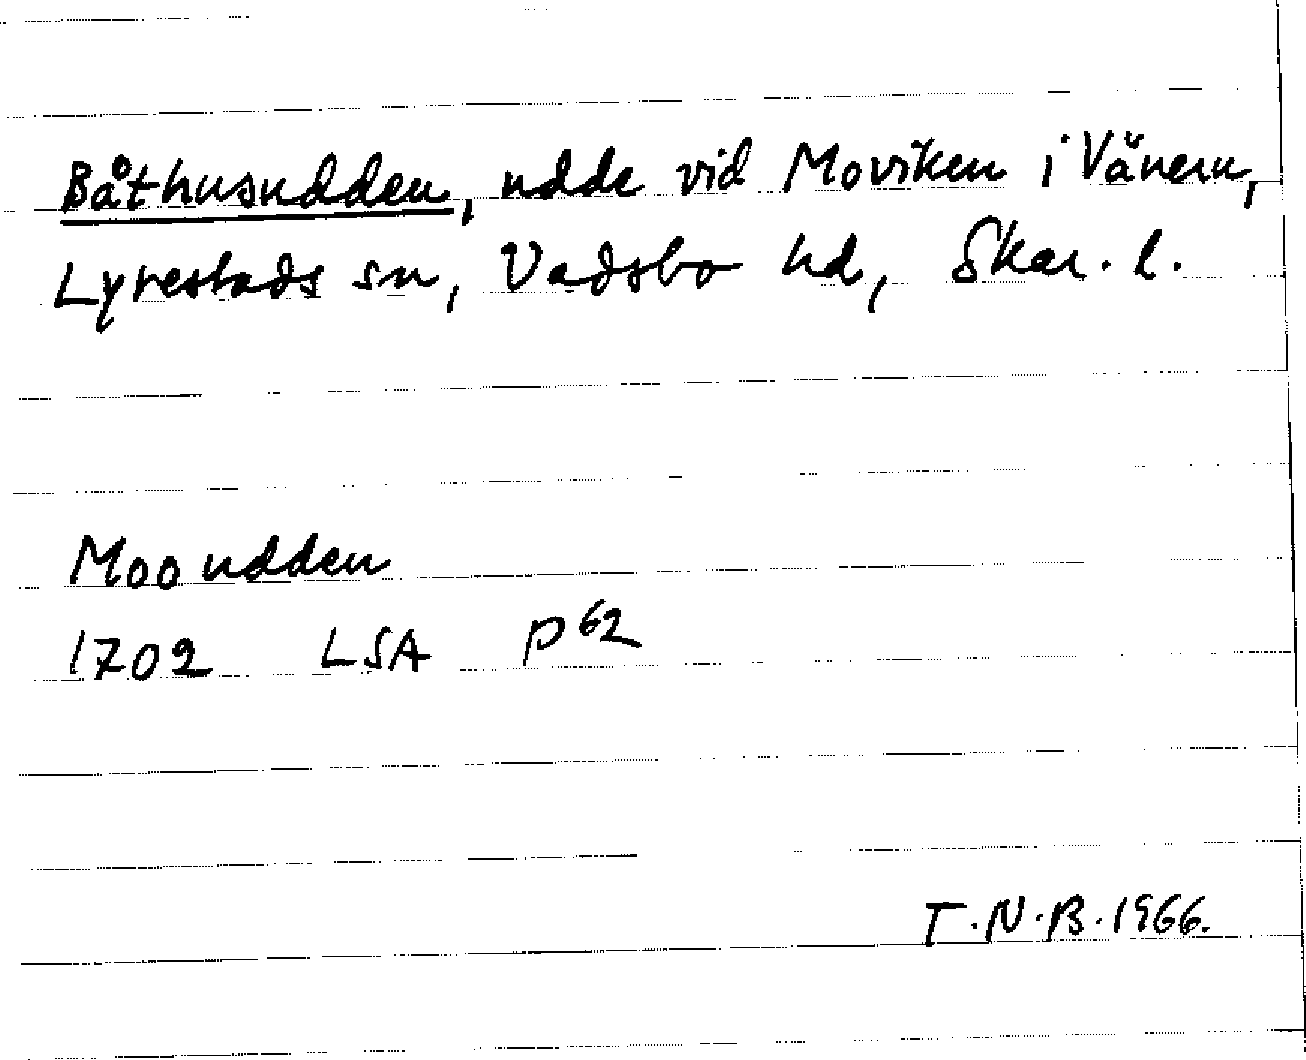 Båthusudden, udde vid Moviken i Vänern,
Lyrestads sn, Vadsbo hd, Skar. l.
Moo udden
1702 LSA P62
T.N.B. 1966.